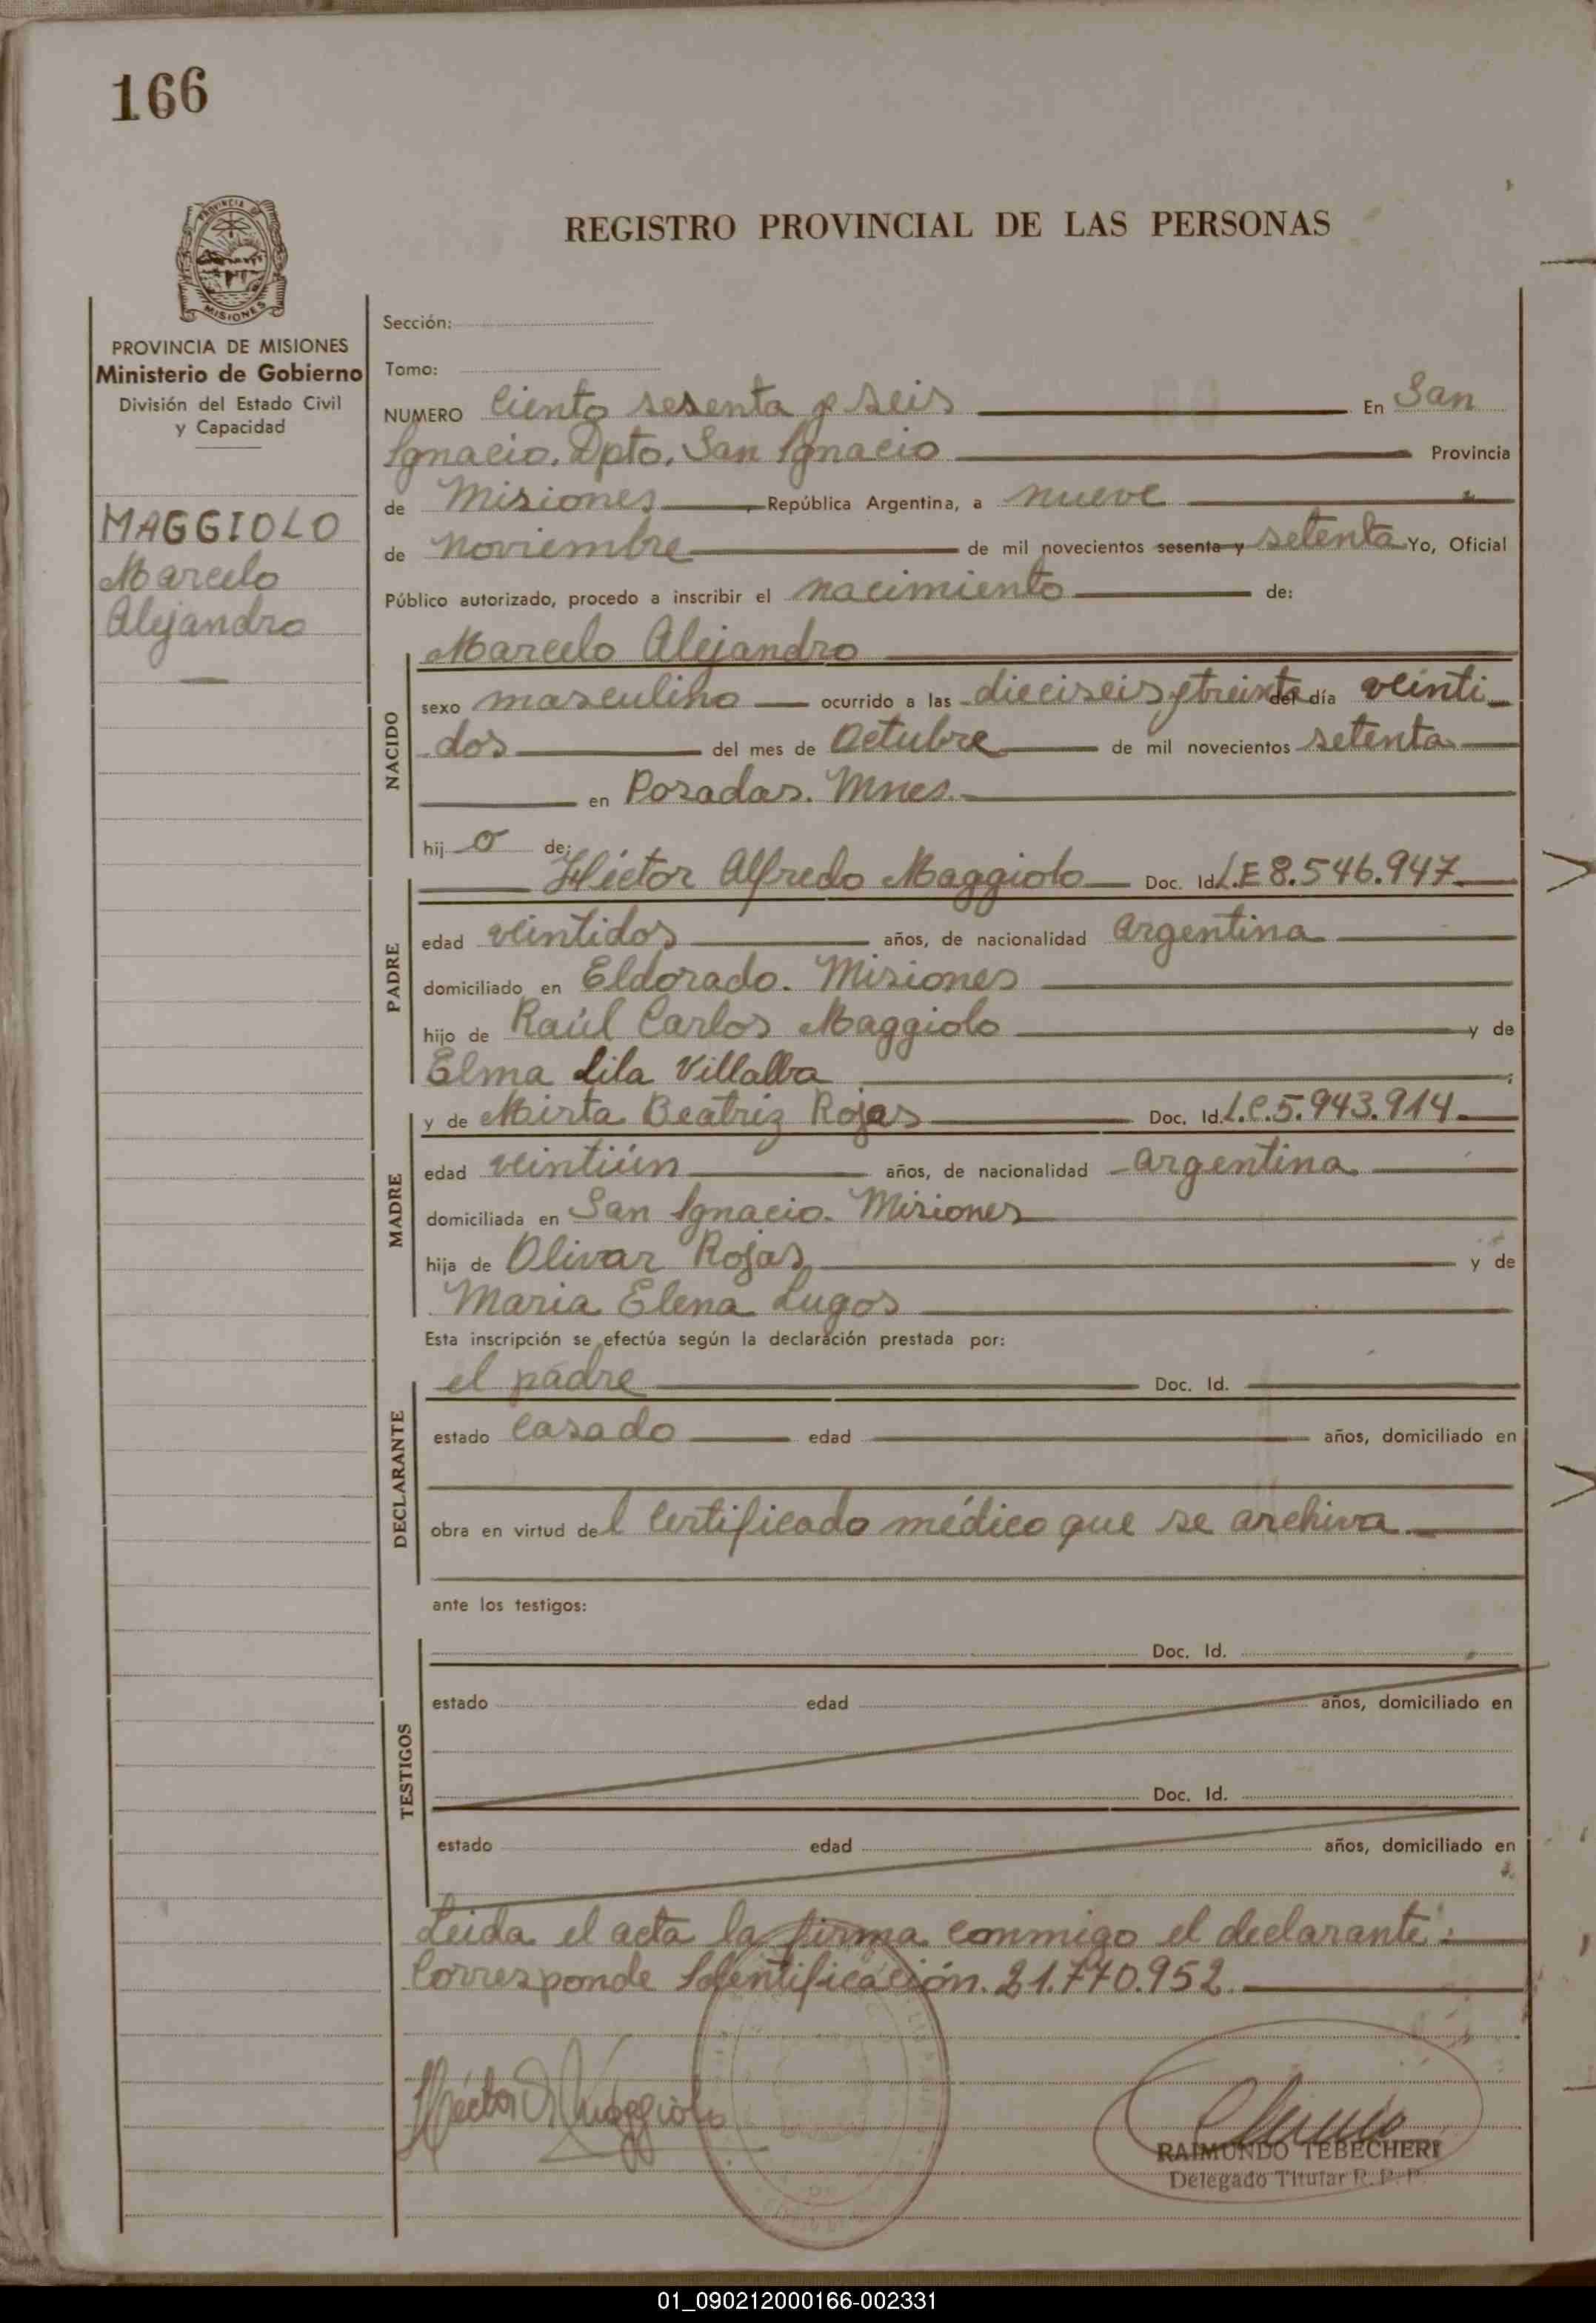 166
PROVINCIA DE
MISIONES
REGISTRO PROVINCIAL DE LAS PERSONAS
PROVINCIA DE MISIONES
Ministerio de Gobierno
División del Estado Civil
y Capacidad
MAGGIOLO
Marcelo
Alejandro
Sección:
Tomo:
NUMERO Ciento sesenta y seis En San
Ignacio. Dpto. San Ignacio Provincia
de Misiones República Argentina, a nueve
de noviembre de mil novecientos sesenta y setenta Yo, Oficial
Público autorizado, procedo a inscribir el nacimiento de:
Marcelo Alejandro
NACIDO
sexo masculino ocurrido a las dieciseis y treinta del día veinti
dos del mes de Octubre de mil novecientos setenta
en Posadas. Mnes.
hij o de:
Héctor Alfredo Maggiolo Doc. Id. L.E 8.546.947
PADRE
edad veintidos años, de nacionalidad argentina
domiciliado en Eldorado. Misiones
hijo de Raúl Carlos Maggiolo y de
Elma Lila Villalba
y de Mirta Beatriz Rojas Doc. Id. L.C. 5.943.914
MADRE
edad veintiún años, de nacionalidad argentina
domiciliada en San Ignacio. Misiones
hija de Olivar Rojas y de
Maria Elena Lugos
Esta inscripción se efectúa según la declaración prestada por:
el padre Doc. Id.
DECLARANTE
estado Casado edad años, domiciliado en
obra en virtud del Certificado médico que se archiva
ante los testigos:
TESTIGOS
Doc. Id.
estado edad años, domiciliado en
Doc. Id.
estado edad años, domiciliado en
Leida el acta la firma conmigo el declarante:
Corresponde Identificación. 21.770.952
Héctor A. Maggiolo
RAIMUNDO TEBECHERI
Delegado Titular R. P. P.
01_090212000166-002331